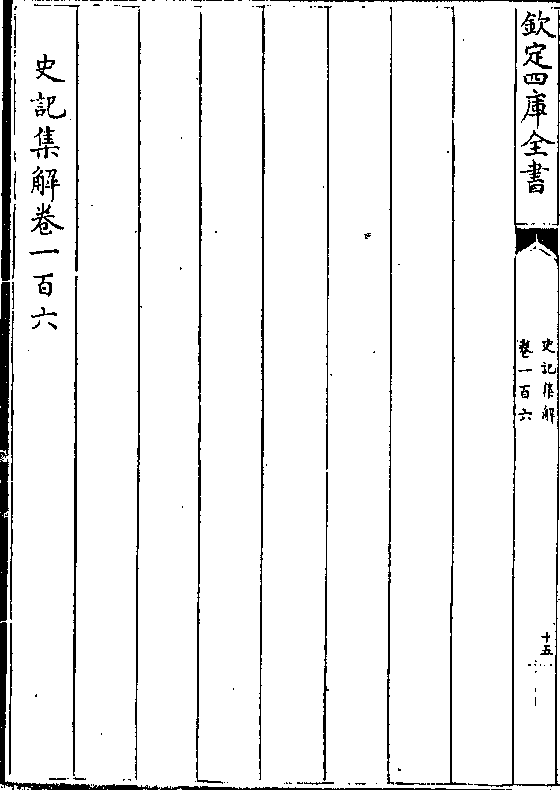 欽定四庫全書
史記集解
卷一百六
十五
史記集解卷一百六